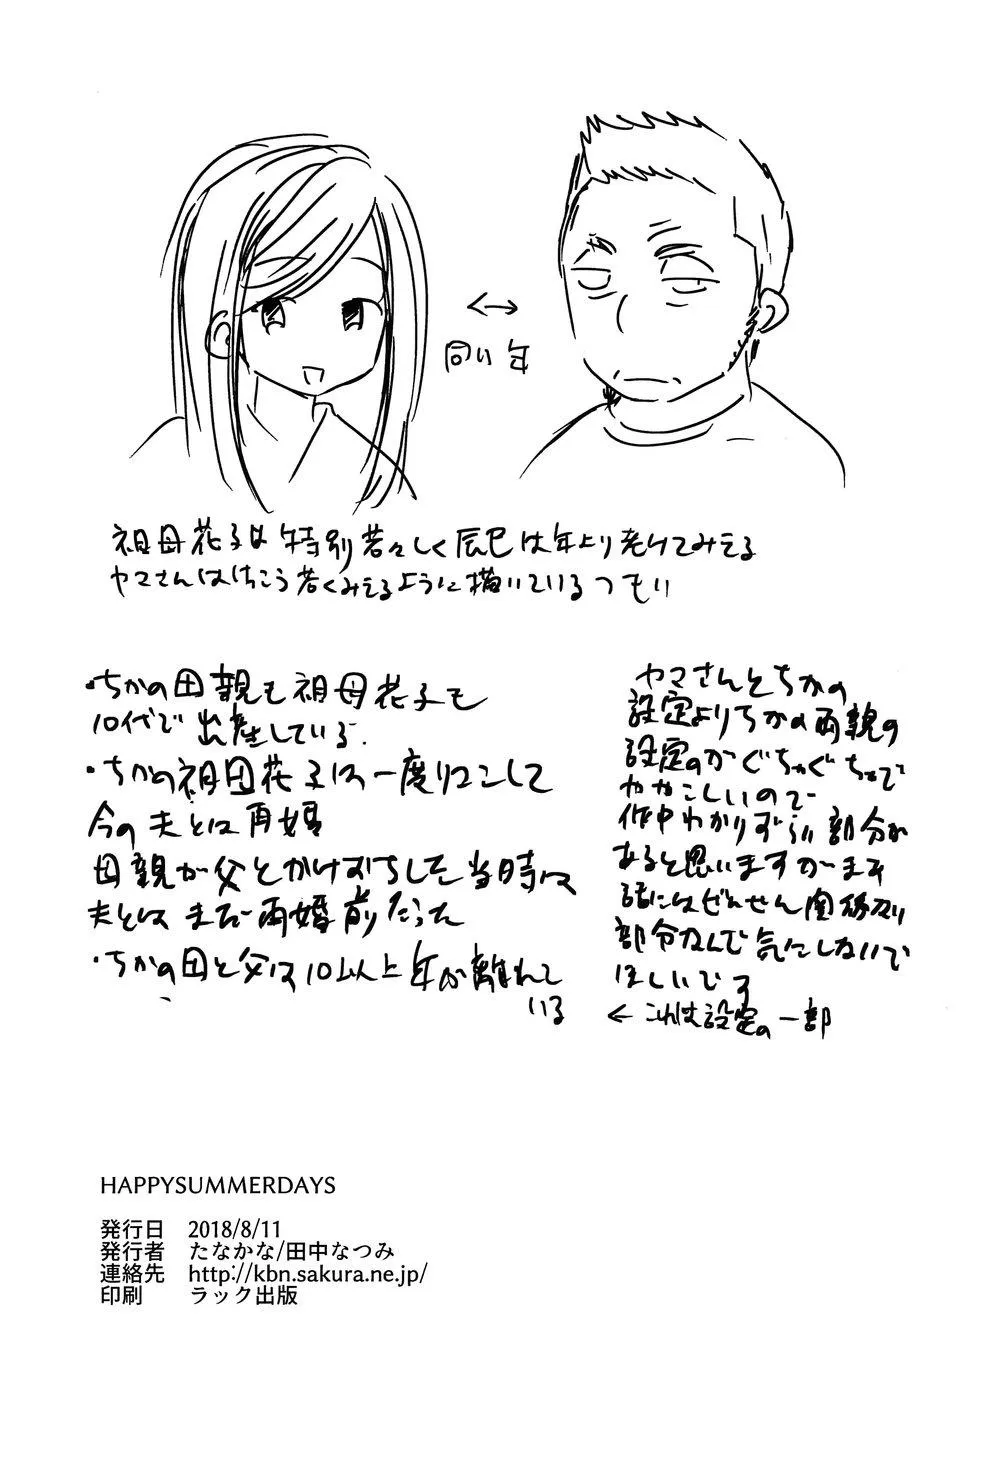 同い年
祖母花子は特別若々しく辰巳は年より老けてみえる
ヤマさんはけっこう若くみえるように描いているつもり
・ちかの母親も祖母花子も
10代で出産している。
・ちかの祖母花子は一度リコンして
今の夫とは再婚
母親が父とかけおちした当時は
夫とはまだ再婚前だった
・ちかの母と父は10以上年が離れて
いる
ヤマさんとちかの
設定よりちかの両親の
設定のがぐちゃぐちゃで
ややこしいので
作中わかりずらい部分が
あると思いますがまぁ
話にはぜんぜん関係ない
部分なんで気にしないで
ほしいです
← これは設定の一部
HAPPYSUMMERDAYS
発行日 2018/8/11
発行者 たなかな/田中なつみ
連絡先 http://kbn.sakura.ne.jp/
印刷 ラック出版